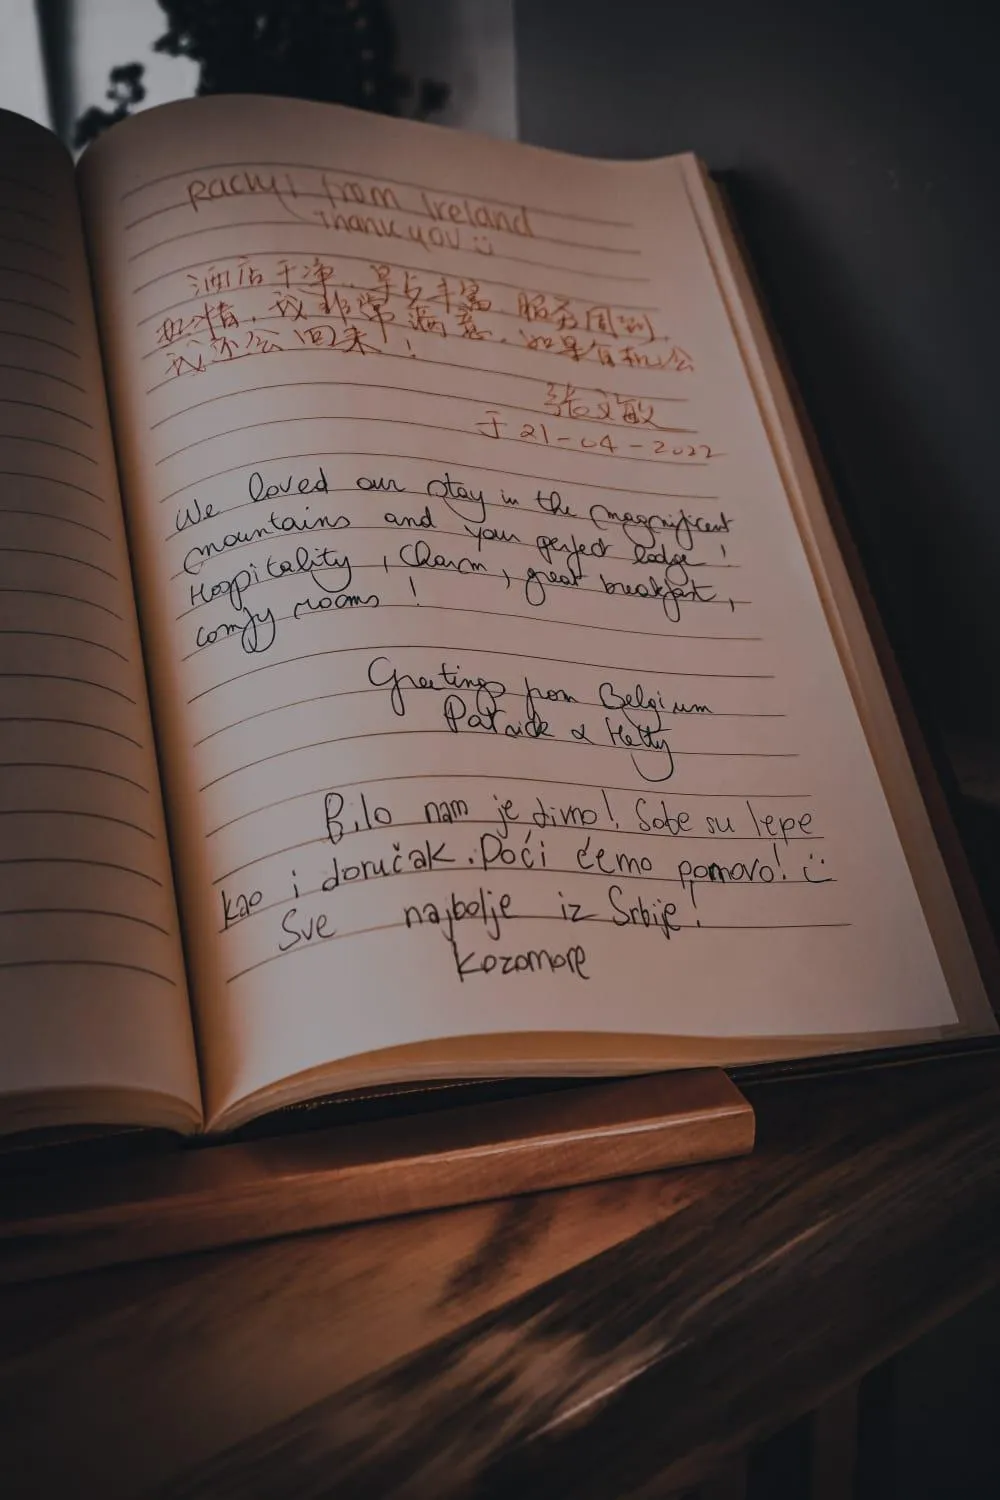 from Ireland
Thank you
酒店干净、早点丰富、服务周到、
热情，我非常满意。如果有机会
我还会回来！
张文敏
于 21-04-2022
We loved our stay in the magnificent
mountains and your perfect lodge!
Hospitality, Charm, great breakfast,
comfy rooms!
Greetings from Belgium
Patrick & Hetty
Bilo nam je divno! Sobe su lepe
kao i doručak. Doći ćemo ponovo!
Sve najbolje iz Srbije!